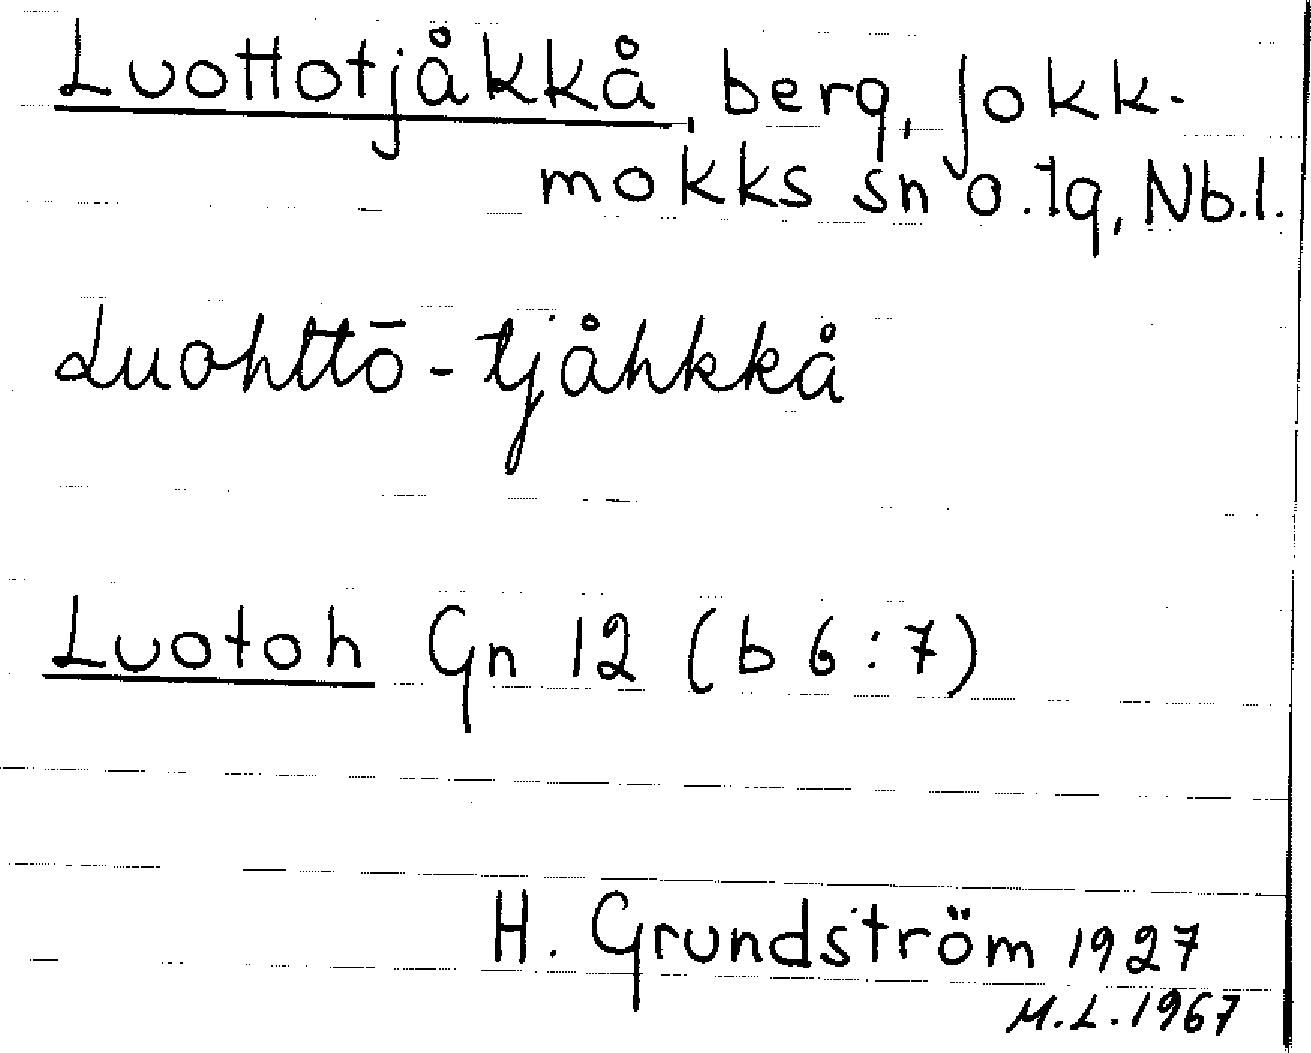 Luottotjåkkå, berg, Jokk-
mokks sn o. tg, Nb.l.
Luohttō-tjåhkkå
Luotoh Gn 12 (b 6:7)
H. Grundström 1927
M.L. 1967